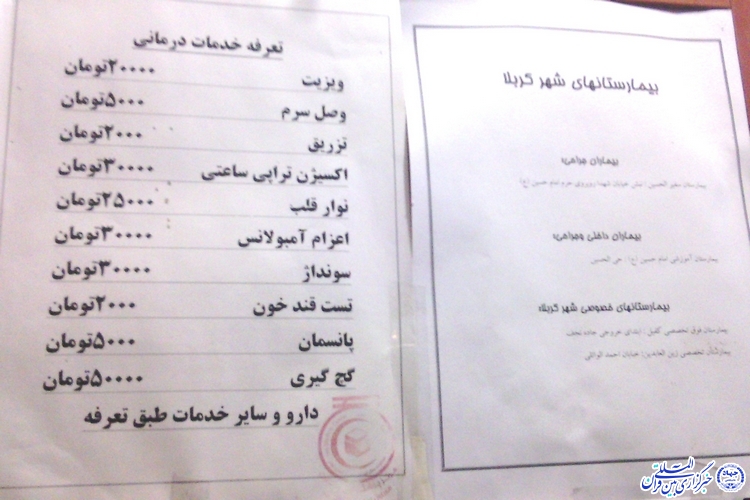 تعرفه خدمات درمانی
ویزیت ۲۰۰۰۰تومان
وصل سرم ۵۰۰۰تومان
تزریق ۲۰۰۰تومان
اکسیژن تراپی ساعتی ۳۰۰۰۰تومان
نوار قلب ۲۵۰۰۰تومان
اعزام آمبولانس ۳۰۰۰۰تومان
سونداژ ۳۰۰۰۰تومان
تست قند خون ۲۰۰۰تومان
پانسمان ۵۰۰۰تومان
گچ گیری ۵۰۰۰۰تومان
دارو و سایر خدمات طبق تعرفه
بیمارستانهای شهر کربلا
بیماران جراحی:
بیمارستان سفیر الحسین : نبش خیابان شهدا روبروی حرم امام حسین (ع)
بیماران داخلی وجراحی:
بیمارستان آموزشی امام حسین (ع) : حی الحسین
بیمارستانهای خصوصی شهر کربلا:
بیمارستان فوق تخصصی کفیل : ابتدای خروجی جاده نجف
بیمارستان تخصصی زین العابدین: خیابان احمد الوائلی
خبرگزاری بین المللی قرآن